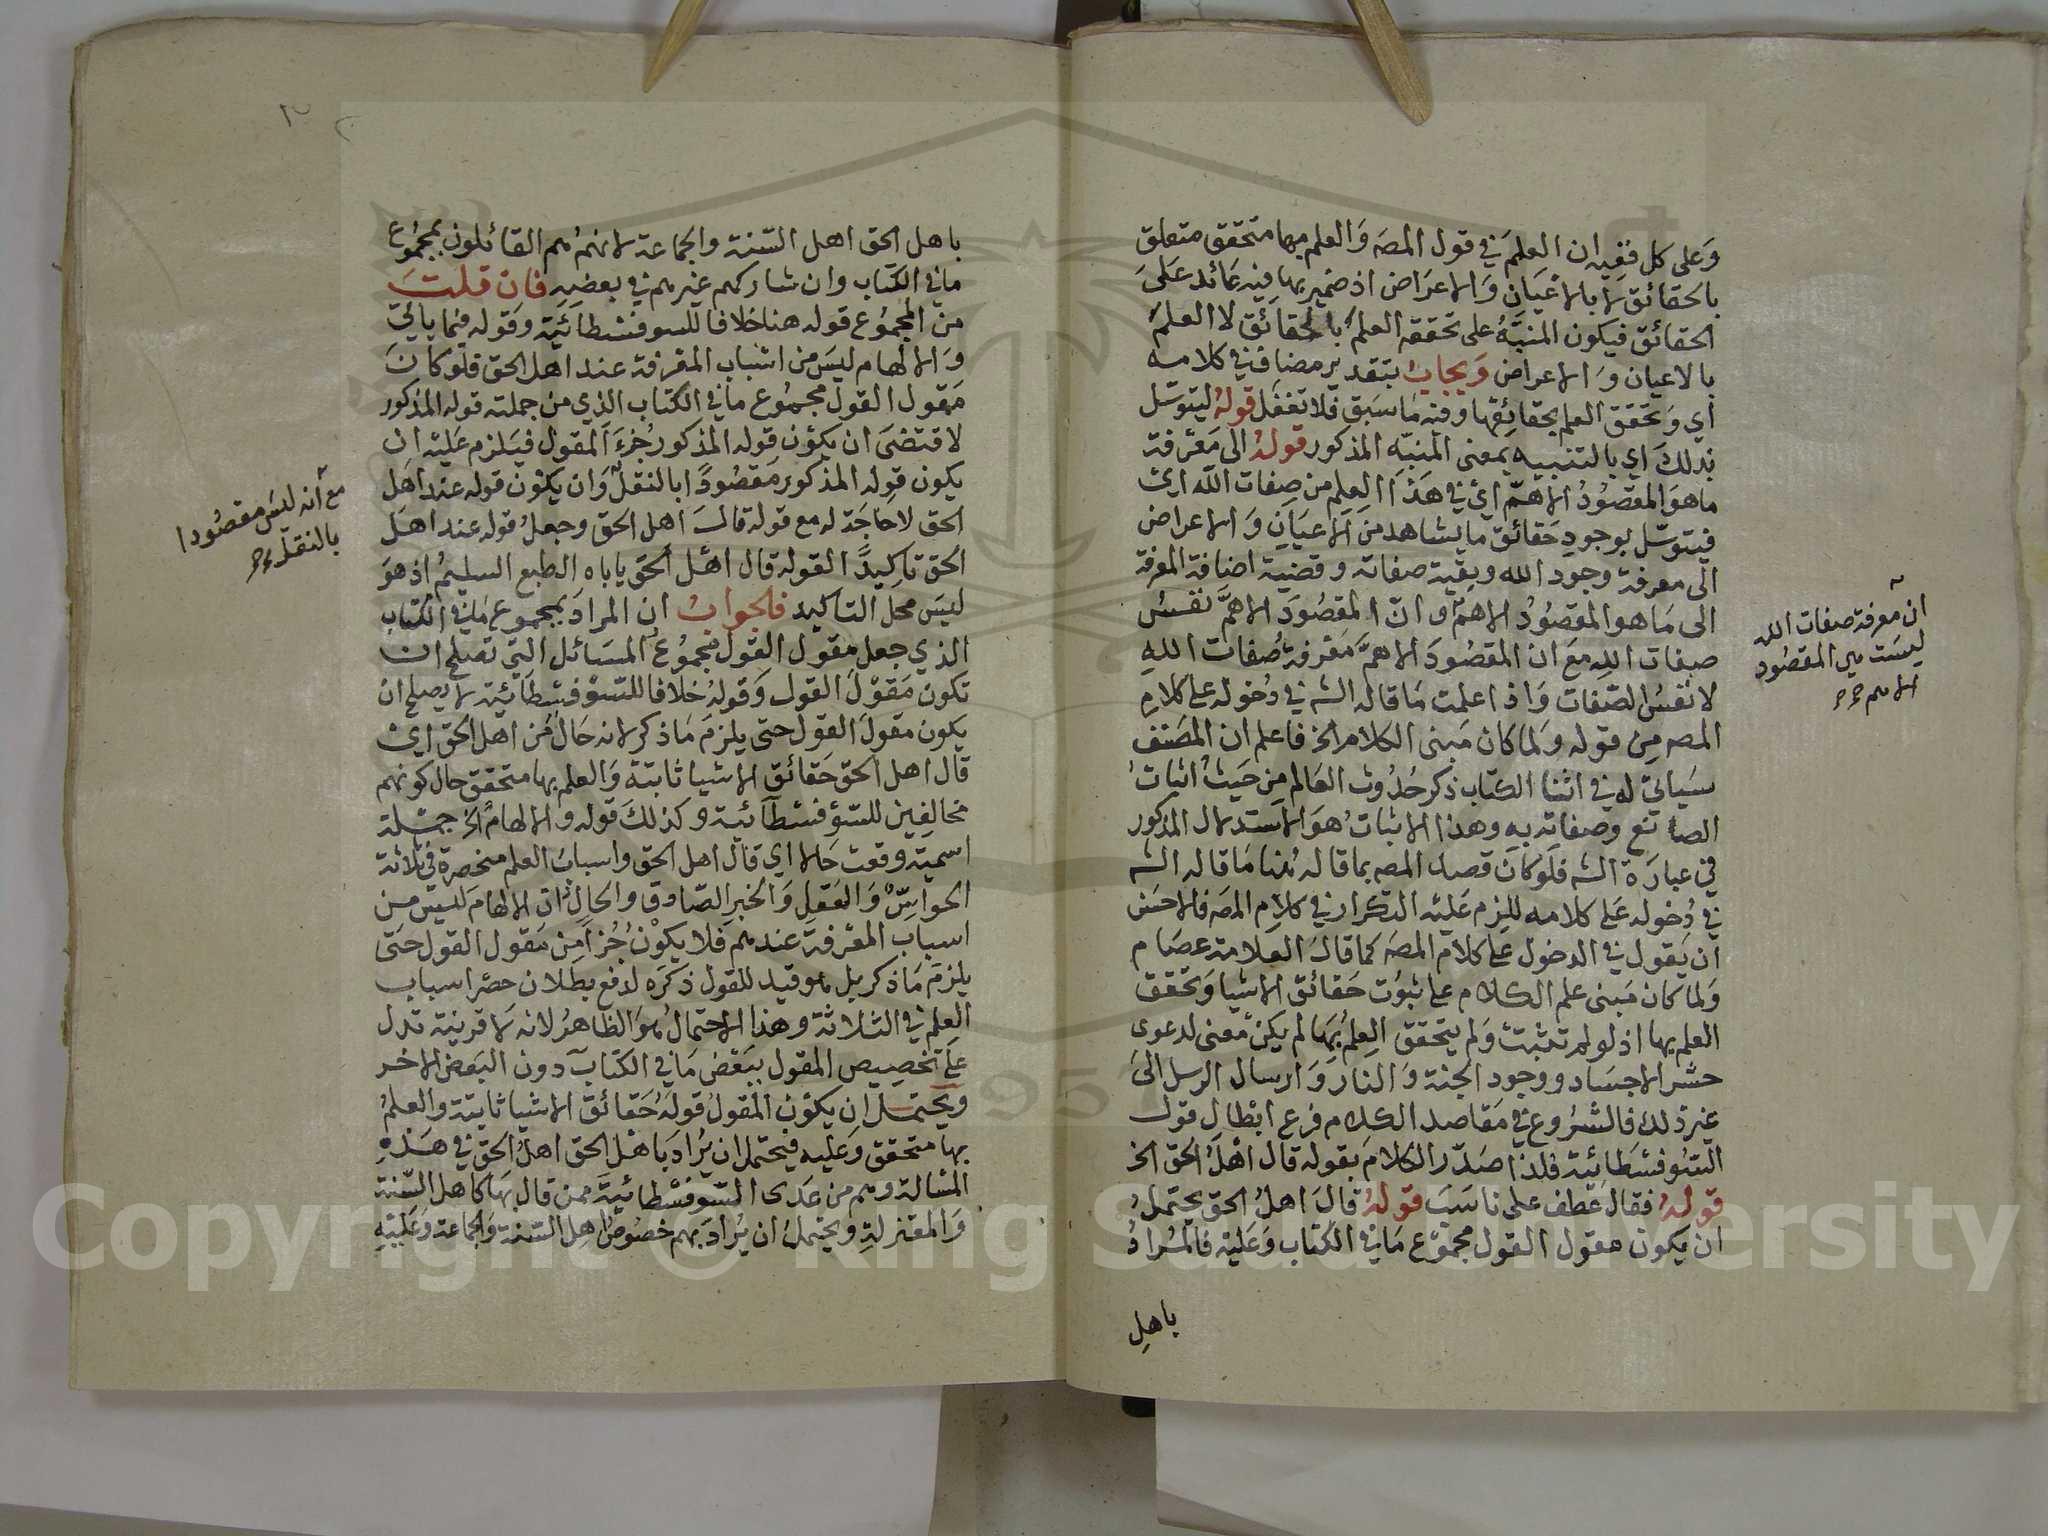 وعلى كل ففيه ان العلم في قول المصه والعلم بها متحقق متعلق
بالحقائق لا بالاعيان والاعراض اذ ضمير بها فيه عائد على
الحقائق فيكون المنبه على تحققه العلم بالحقائق لا العلم
بالاعيان والاعراض ويجاب بتقدير مضاف في كلامه
اي وتحقق العلم بحقائقها وفيه ما سبق فلا تغفل قوله ليتوسل
بذلك اي بالتنبيه بمعنى المنبه المذكور قوله الى معرفة
ما هو المقصود الاهم اي في هذا العلم من صفات الله اي
فيتوسل بوجود حقائق ما يشاهد من الاعيان والاعراض
الى معرفة وجود الله وبقية صفاته وقضية اضافة المعرفة
الى ما هو المقصود الاهم وان المقصود الاهم نفس
صفات الله مع ان المقصود الاهم معرفة صفات الله
لا نفس الصفات واذا علمت ما قاله الشه في دخوله على كلام
المصه من قوله ولما كان مبنى الكلام الخ فاعلم ان المصنف
سيأتي له في اثنا الكتاب ذكر حدوث العالم من حيث اثبات
الصانع وصفاته به وهذا الاثبات هو الاستدلال المذكور
في عبارة الشه فلو كان قصد المصه بما قاله هنا ما قاله الشه
في دخوله على كلامه للزم عليه التكرار في كلام المصه فالاحسن
ان يقول في الدخول على كلام المصه كما قال العلامة عصام
ولما كان مبنى علم الكلام على ثبوت حقائق الاشيا وتحقق
العلم بها اذ لو لم تثبت ولم يتحقق العلم بها لم يكن معنى لدعوى
حشر الاجساد ووجود الجنة والنار وارسال الرسل الى
غير ذلك فالشروع في مقاصد الكلام فرع ابطال قول
السوفسطائية فلذا صدر الكلام بقوله قال اهل الحق الخ
قوله فقال عطف على ناسب قوله قال اهل الحق يحتمل
ان يكون مقول القول مجموع ما في الكتاب وعليه فالمراد
باهل
ان معرفة صفات الله
ليست هي المقصود
الاهم
باهل الحق اهل السنة والجماعة لانهم هم القائلون بمجموع
ما في الكتاب وان شاركهم غيرهم في بعضه فان قلت
من المجموع قوله هنا خلافا للسوفسطائية وقوله فيما ياتي
والالهام ليس من اسباب المعرفة عند اهل الحق فلو كان
مقول القول مجموع ما في الكتاب الذي من جملته قوله المذكور
لاقتضى ان يكون قوله المذكور جزء المقول فيلزم عليه ان
يكون قوله المذكور مقصودا بالنقل وان يكون قوله عند اهل
الحق لا حاجة له مع قوله قال اهل الحق وجعل قوله عند اهل
الحق تاكيدا لقوله قال اهل الحق ياباه الطبع السليم اذ هو
ليس محل التاكيد فالجواب ان المراد بمجموع ما في الكتاب
الذي جعل مقول القول مجموع المسائل التي تصلح ان
تكون مقول القول وقوله خلافا للسوفسطائية لا يصلح ان
يكون مقول القول حتى يلزم ما ذكر لانه حال من اهل الحق اي
قال اهل الحق حقائق الاشيا ثابتة والعلم بها متحقق حال كونهم
مخالفين للسوفسطائية وكذلك قوله والالهام الخ جملة
اسمية وقعت حالا اي قال اهل الحق واسباب العلم منحصرة في ثلاثة
الحواس والعقل والخبر الصادق والحال ان الالهام ليس من
اسباب المعرفة عندهم فلا يكون جزأ من مقول القول حتى
يلزم ما ذكر بل هو قيد للقول ذكره لدفع بطلان حصر اسباب
العلم في الثلاثة وهذا الاحتمال هو الظاهر لانه لا قرينة تدل
على تخصيص المقول ببعض ما في الكتاب دون البعض الاخر
ويحتمل ان يكون المقول قوله حقائق الاشيا ثابتة والعلم
بها متحقق وعليه فيحتمل ان يراد باهل الحق اهل الحق في هذه
المسالة وهم من عدى السوفسطائية ممن قال بها كاهل السنة
والمعتزلة ويحتمل ان يراد بهم خصوص اهل السنة والجماعة وعليه
مع انه ليس مقصودا
بالنقل
Copyright © King Saud University
1957